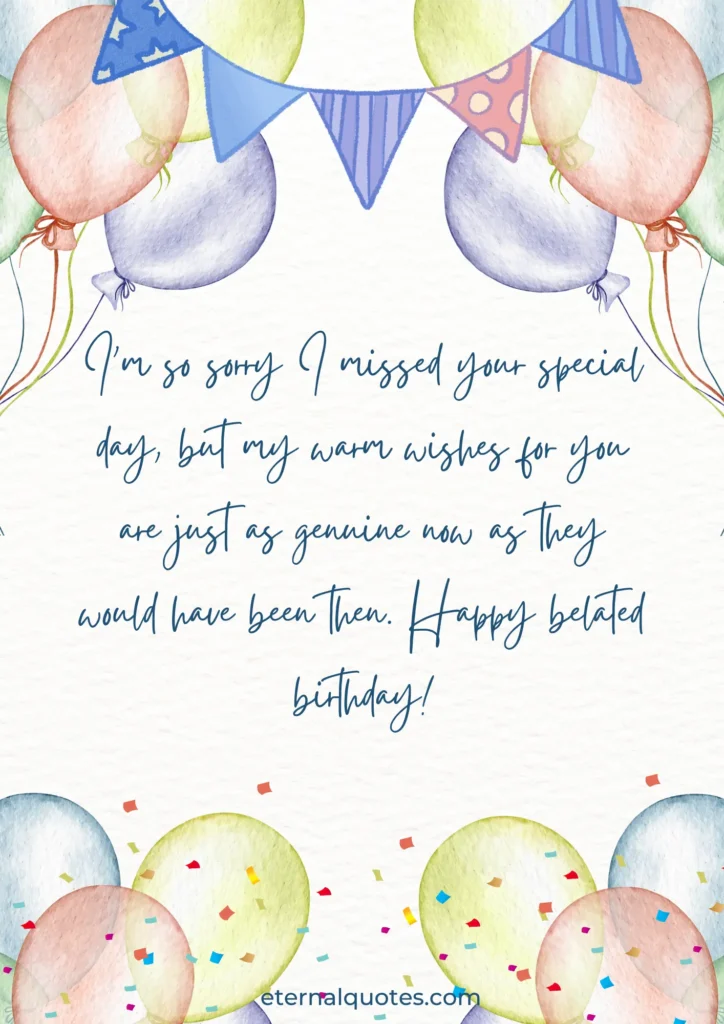 I'm so sorry I missed your special
day, but my warm wishes for you
are just as genuine now as they
would have been then. Happy belated
birthday!
eternalquotes.com